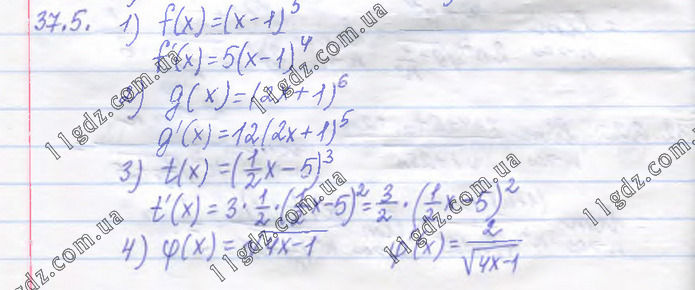 37.5. 1) f(x)=(x-1)^5
f'(x)=5(x-1)^4
2) g(x)=(2x+1)^6
g'(x)=12(2x+1)^5
3) t(x)=(1/2x-5)^3
t'(x)=3·1/2·(1/2x-5)^2=3/2·(1/2x-5)^2
4) φ(x)=√4x-1 φ'(x)=2/√4x-1
11gdz.com.ua
11gdz.com.ua
11gdz.com.ua
11gdz.com.ua
11gdz.com.ua
11gdz.com.ua
11gdz.com.ua